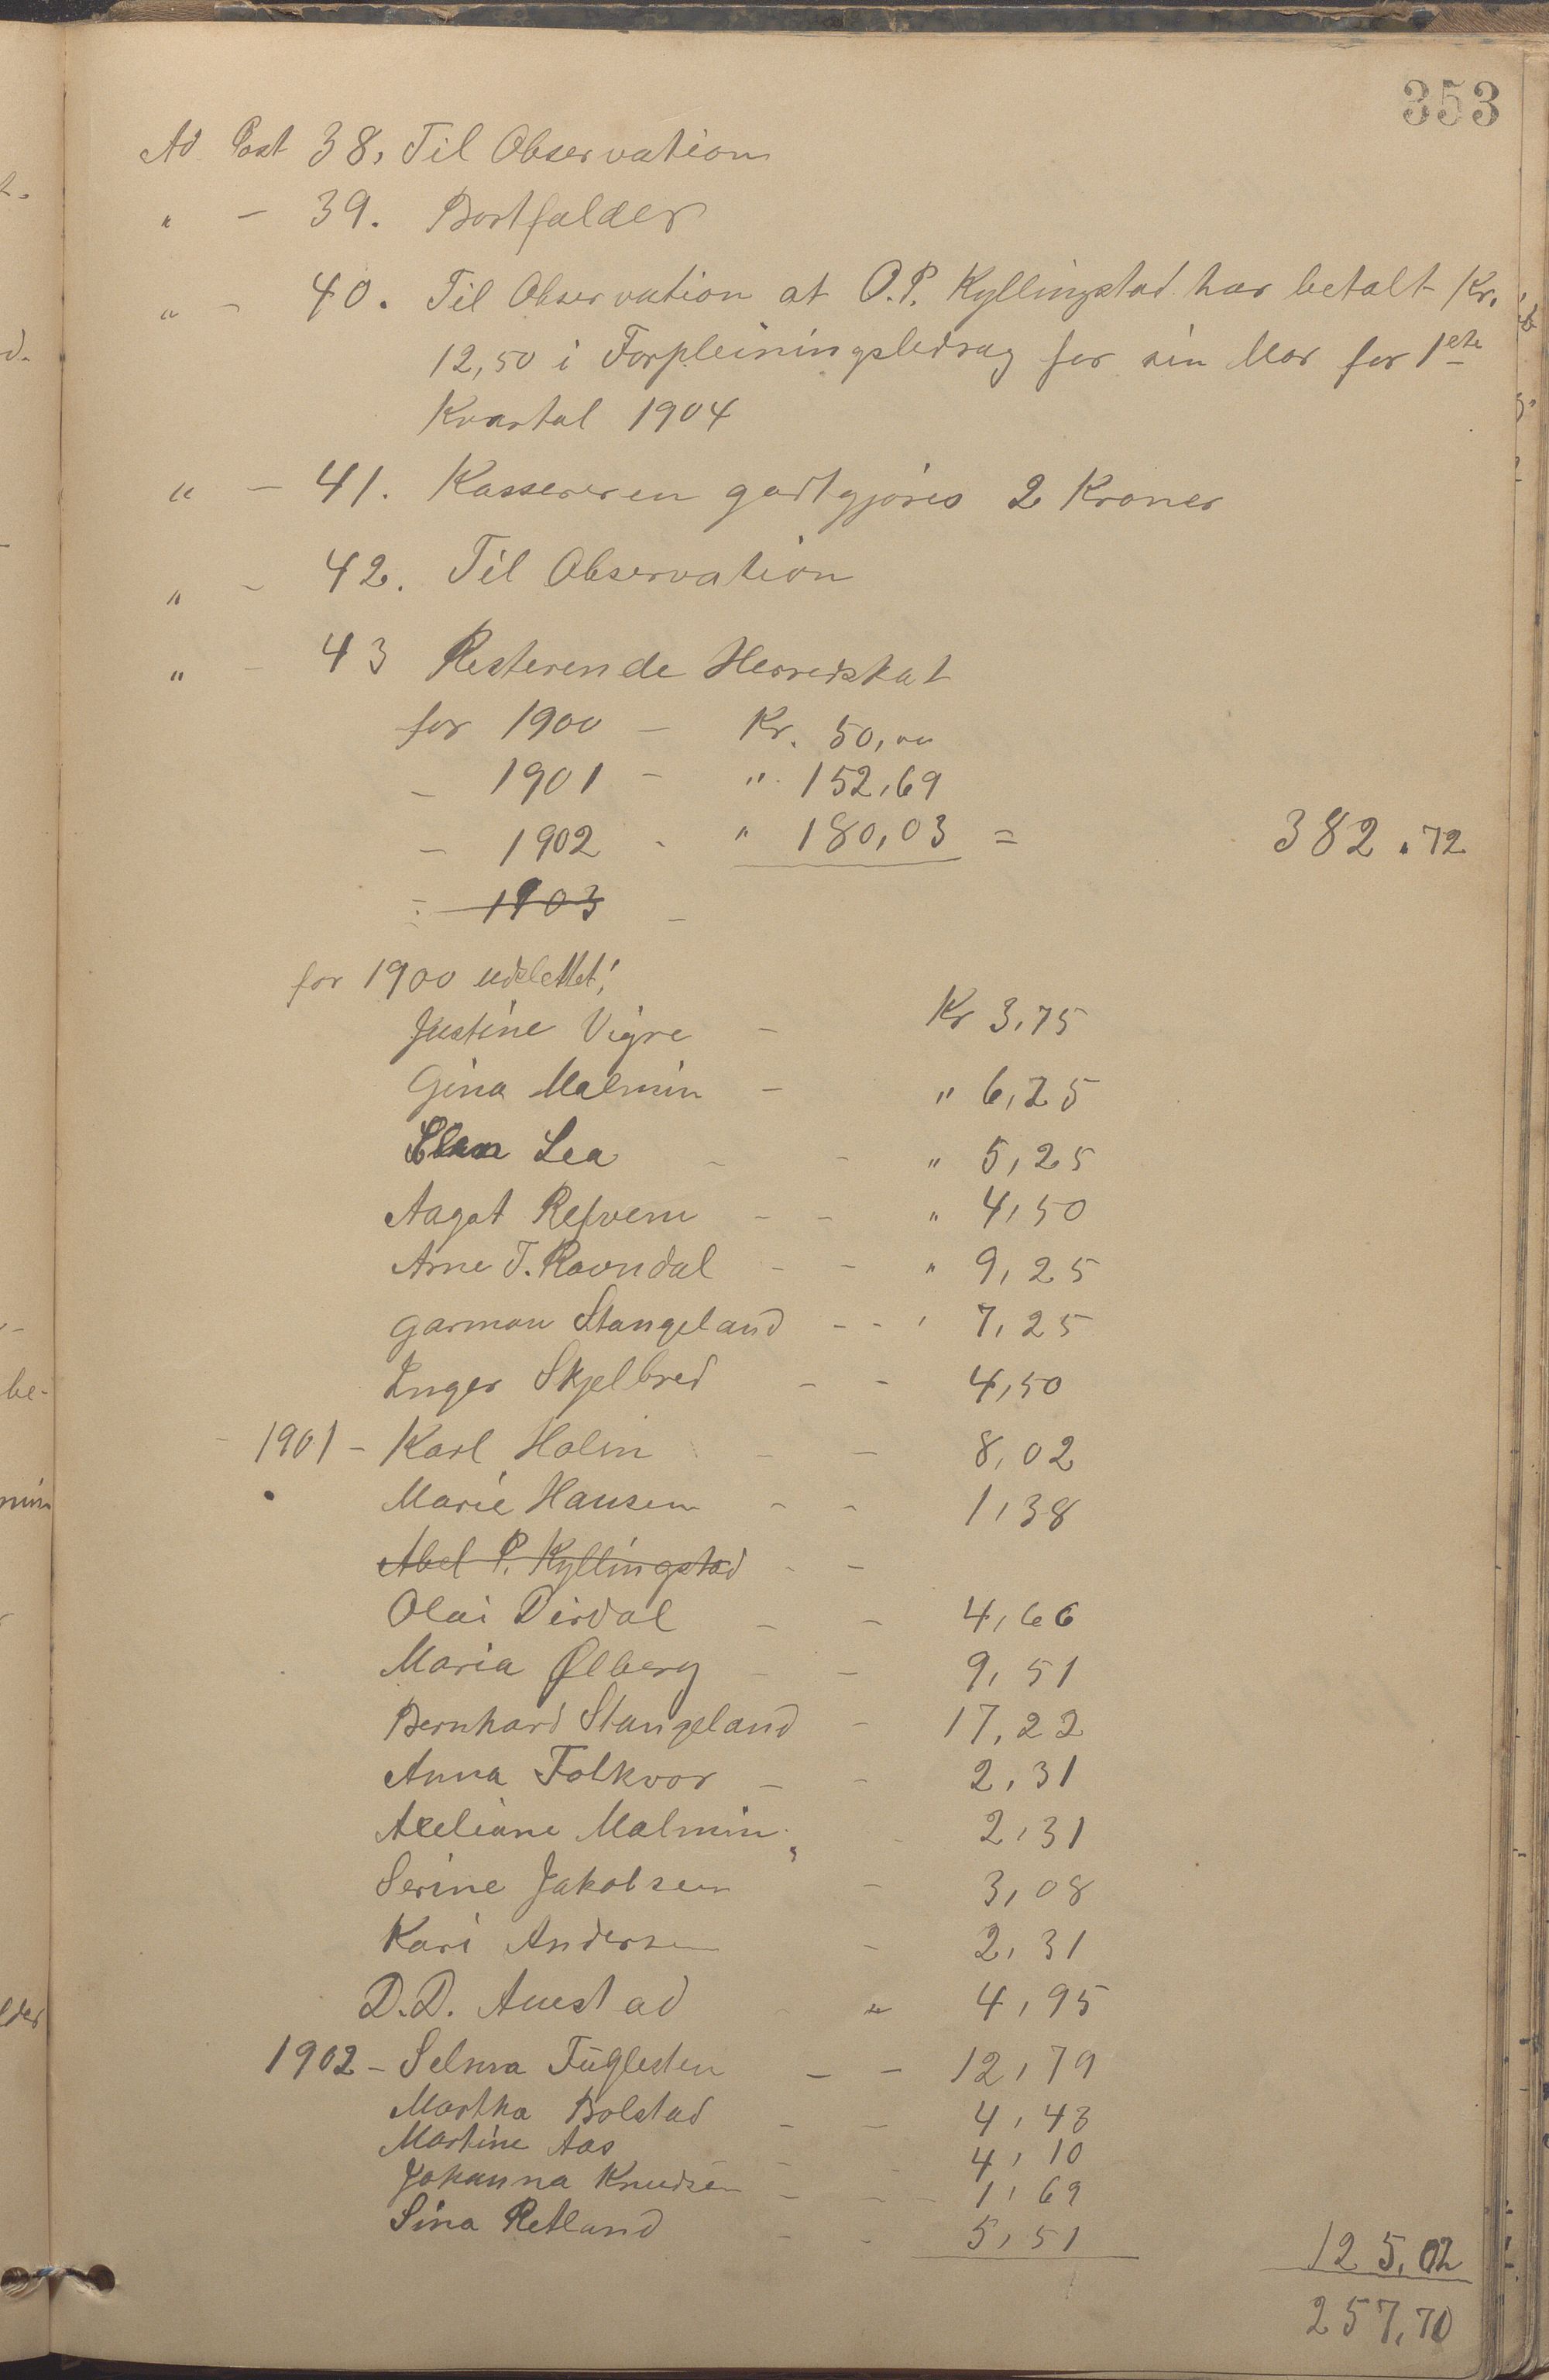 353
Ad Post 38. Til Observation
" - 39. Bortfalder
" - 40. Til Observation at O.P. Kyllingstad har betalt Kr.
12,50 i Forpleiningsbidrag for sin Mor for 1ste
Kvartal 1904
" - 41. Kassereren godtgjøres 2 Kroner
" - 42. Til Observation
" - 43 Resterende Herredskat
for 1900 - Kr. 50,00
- 1901 - " 152,69
- 1902 - " 180,03 = 382.72
- 1903 -
for 1900 udslettet!
Justine Vigre - Kr 3,75
Gina Malmin - " 6,25
Elen Lea - - " 5,25
Aagot Refvem - - " 4,50
Arne T. Ravndal - - " 9,25
Garman Stangeland - - " 7,25
Inger Skjelbred - - 4,50
- 1901 - Karl Holm - - 8,02
Marie Hansen - - 1,38
Abel P. Kyllingstad - -
Olai Dirdal - - 4,66
Maria Ølberg - - 9,51
Bernhard Stangeland - 17,22
Anna Folkvor - - 2,31
Axeliane Malmin - 2,31
Serine Jakobsen - 3,08
Kari Andersen - 2,31
D.D. Auestad - " 4,95
1902 - Selma Fuglesten - - 12,79
Martha Bolstad - - 4,43
Martine Aas - - 4,10
Johanna Knudsen - - - 1,69
Sina Retland - - 5,51 125,02
257,70